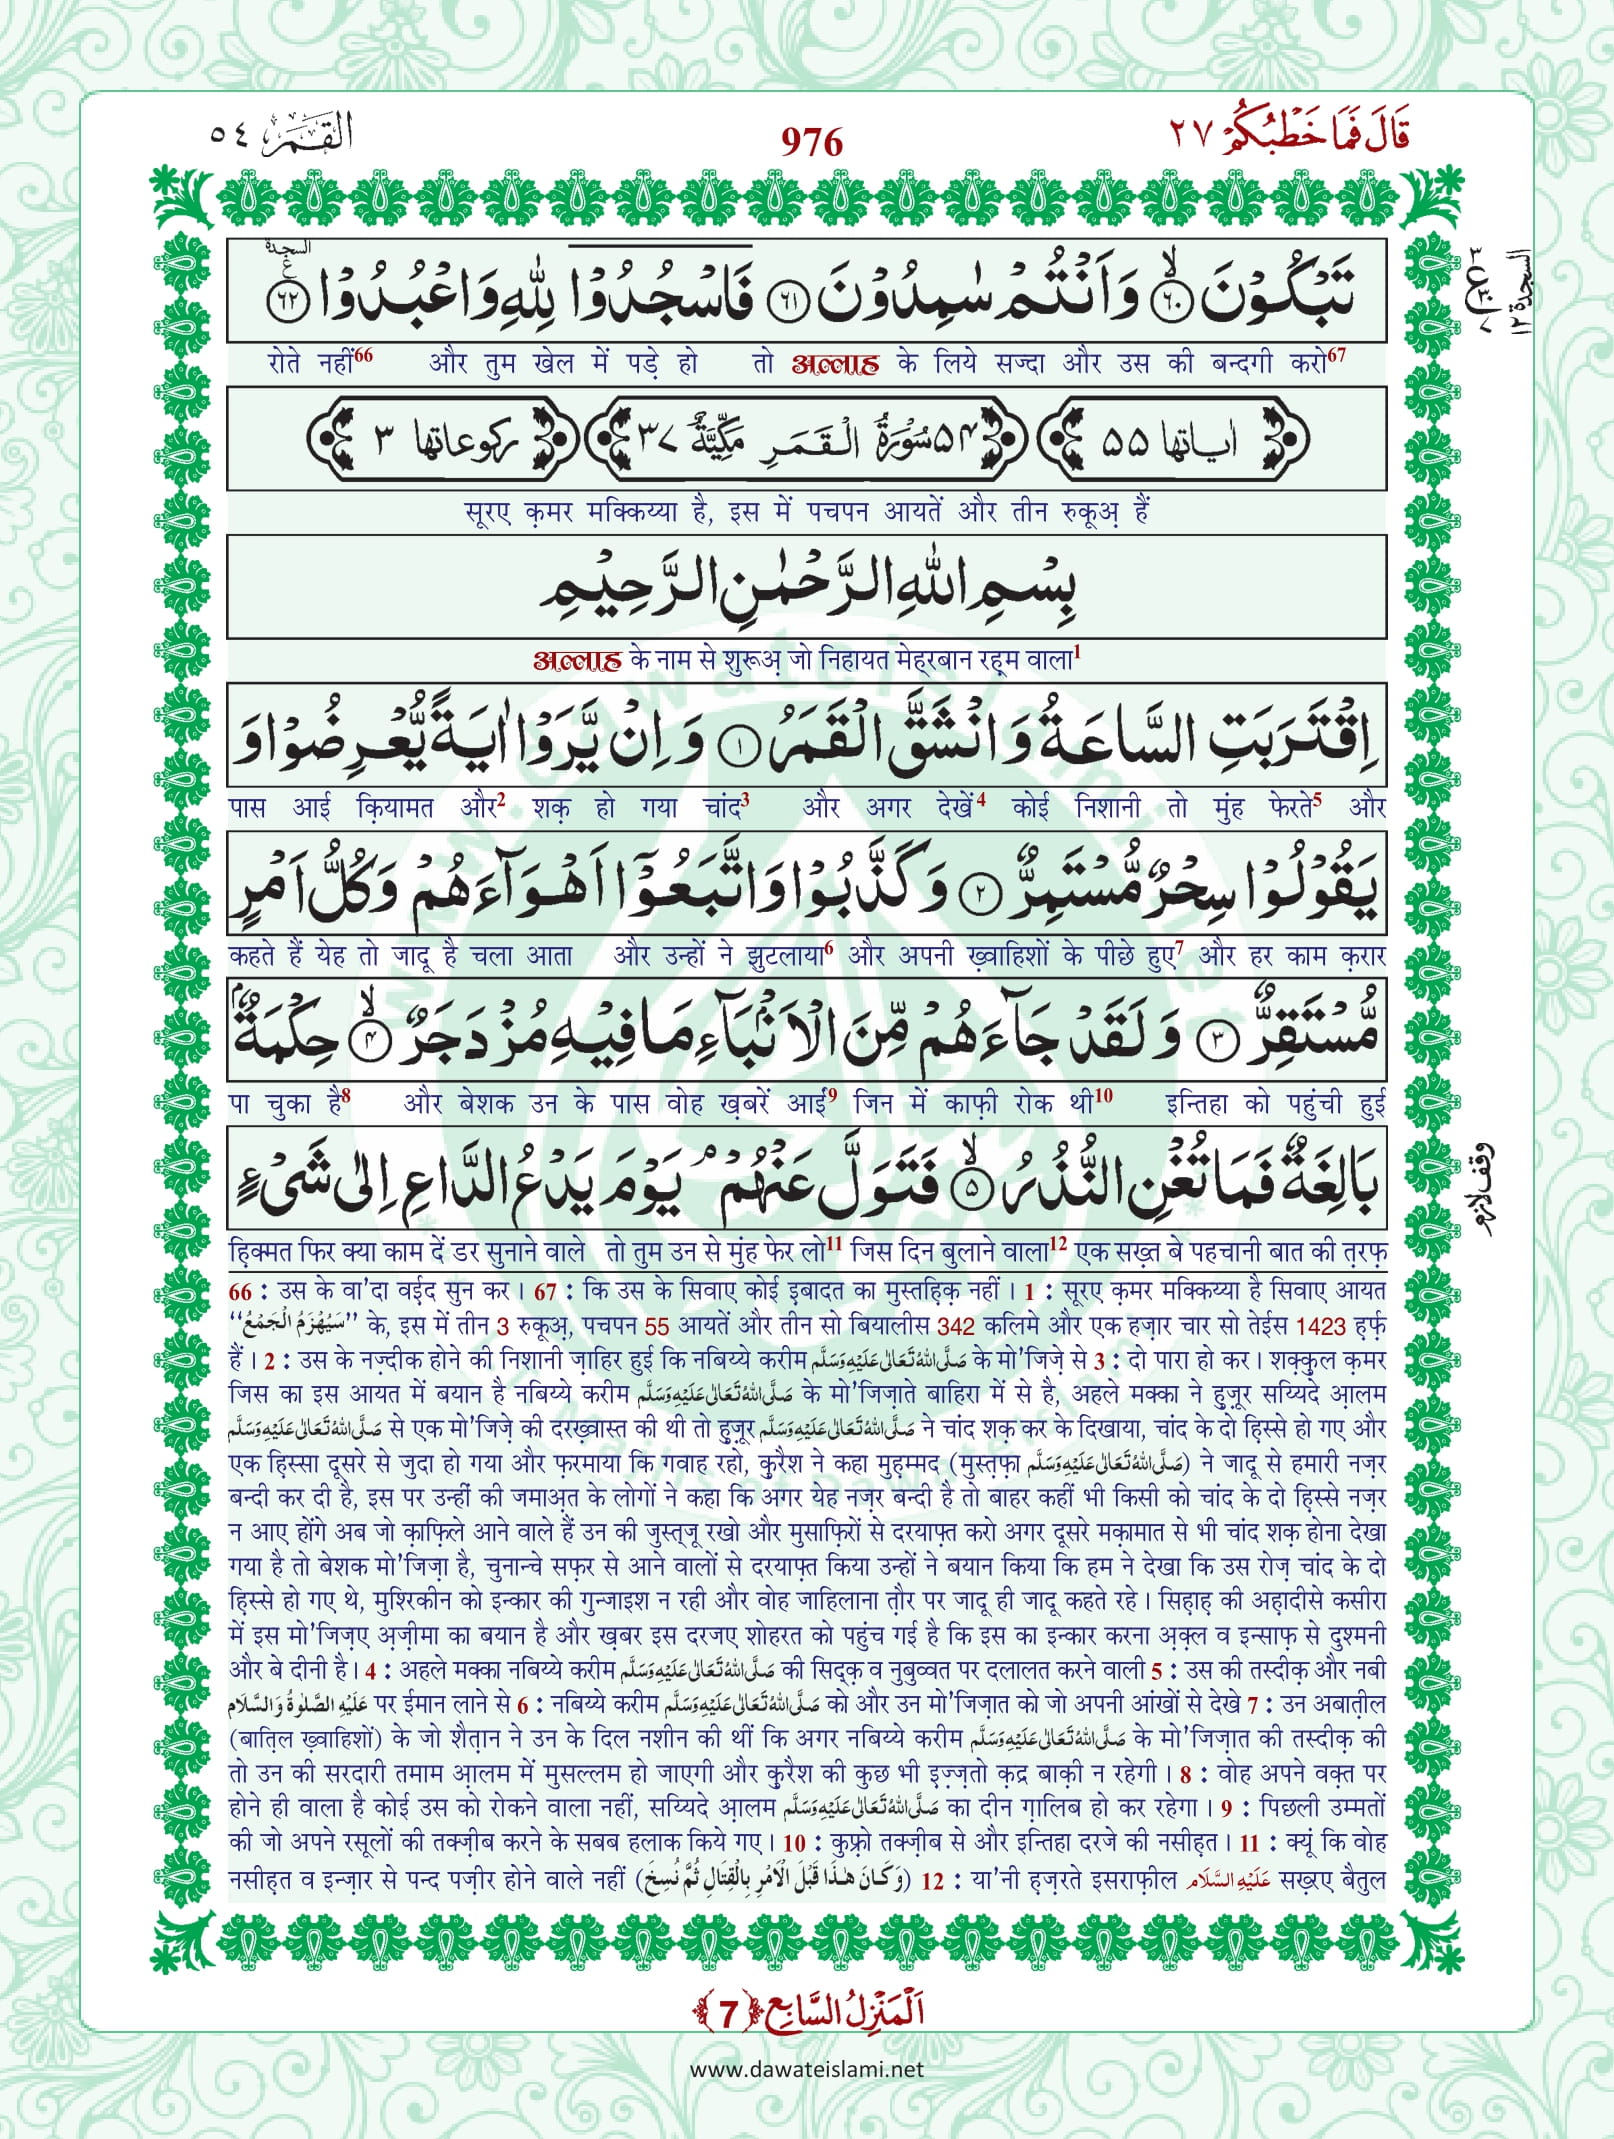 اَلْقَمَر ٥٤
976
قَالَ فَمَا خَطْبُكُمْ ٢٧
تَبْكُوْنَ ۙ﴿۶۰﴾ وَ اَنْتُمْ سٰمِدُوْنَ ﴿۶۱﴾ فَاسْجُدُوْا لِلّٰهِ وَ اعْبُدُوْا ﴿۶۲﴾
السجدة
السجدة ١٢
रोते नहीं66 और तुम खेल में पड़े हो तो अल्लाह के लिये सज्दा और उस की बन्दगी करो67
اٰیاتها ۵۵ ۵۴ سُوْرَۃُ الْقَمَرِ مَکِّیَّۃٌ ۳۷ رکوعاتها ۳
सूरए क़मर मक्किय्या है, इस में पचपन आयतें और तीन रुकूअ़ हैं
بِسْمِ اللّٰهِ الرَّحْمٰنِ الرَّحِیْمِ
अल्लाह के नाम से शुरूअ़ जो निहायत मेह्‌रबान रह़्‌म वाला1
اِقْتَرَبَتِ السَّاعَةُ وَ انْشَقَّ الْقَمَرُ ﴿۱﴾ وَ اِنْ یَّرَوْا اٰیَةً یُّعْرِضُوْا وَ
पास आई क़ियामत और2 शक़ हो गया चांद3 और अगर देखें4 कोई निशानी तो मुंह फेरते5 और
یَقُوْلُوْا سِحْرٌ مُّسْتَمِرٌّ ﴿۲﴾ وَ كَذَّبُوْا وَ اتَّبَعُوْۤا اَهْوَآءَهُمْ وَ كُلُّ اَمْرٍ
कहते हैं येह तो जादू है चला आता और उन्हों ने झुटलाया6 और अपनी ख़्वाहिशों के पीछे हुए7 और हर काम क़रार
مُّسْتَقِرٌّ ﴿۳﴾ وَ لَقَدْ جَآءَهُمْ مِّنَ الْاَنْۢبَآءِ مَا فِیْهِ مُزْدَجَرٌ ۙ﴿۴﴾ حِكْمَةٌۢ
पा चुका है8 और बेशक उन के पास वोह ख़बरें आईं9 जिन में काफ़ी रोक थी10 इन्तिहा को पहुंची हुई
بَالِغَةٌ فَمَا تُغْنِ النُّذُرُ ۙ﴿۵﴾ فَتَوَلَّ عَنْهُمْ ۘ یَوْمَ یَدْعُ الدَّاعِ اِلٰى شَیْءٍ
وقف لازم
ह़िक्मत फिर क्या काम दें डर सुनाने वाले तो तुम उन से मुंह फेर लो11 जिस दिन बुलाने वाला12 एक सख़्त बे पहचानी बात की त़रफ़
66 : उस के वा'दा वई़द सुन कर। 67 : कि उस के सिवाए कोई इ़बादत का मुस्तह़िक़ नहीं। 1 : सूरए क़मर मक्किय्या है सिवाए आयत
"سَیُهْزَمُ الْجَمْعُ" के, इस में तीन 3 रुकूअ़, पचपन 55 आयतें और तीन सो बियालीस 342 कलिमे और एक हज़ार चार सो तेईस 1423 ह़र्फ़
हैं। 2 : उस के नज़्दीक होने की निशानी ज़ाहिर हुई कि नबिय्ये करीम صَلَّی اللّٰهُ تَعَالٰی عَلَیْهِ وَسَلَّم के मो'जिज़े से 3 : दो पारा हो कर। शक़्क़ुल क़मर
जिस का इस आयत में बयान है नबिय्ये करीम صَلَّی اللّٰهُ تَعَالٰی عَلَیْهِ وَسَلَّم के मो'जिज़ाते बाहिरा में से है, अहले मक्का ने हु़ज़ूर सय्यिदे आ़लम
صَلَّی اللّٰهُ تَعَالٰی عَلَیْهِ وَسَلَّم से एक मो'जिज़े की दरख़्वास्त की थी तो हु़ज़ूर صَلَّی اللّٰهُ تَعَالٰی عَلَیْهِ وَسَلَّم ने चांद शक़ कर के दिखाया, चांद के दो ह़िस्से हो गए और
एक ह़िस्सा दूसरे से जुदा हो गया और फ़रमाया कि गवाह रहो, क़ुरैश ने कहा मुह़म्मद (मुस्त़फ़ा صَلَّی اللّٰهُ تَعَالٰی عَلَیْهِ وَسَلَّم) ने जादू से हमारी नज़र
बन्दी कर दी है, इस पर उन्हीं की जमाअ़त के लोगों ने कहा कि अगर येह नज़र बन्दी है तो बाहर कहीं भी किसी को चांद के दो ह़िस्से नज़र
न आए होंगे अब जो क़ाफ़िले आने वाले हैं उन की जुस्त्‌जू रखो और मुसाफ़िरों से दरयाफ़्त करो अगर दूसरे मक़ामात से भी चांद शक़ होना देखा
गया है तो बेशक मो'जिज़ा है, चुनान्चे सफ़र से आने वालों से दरयाफ़्त किया उन्हों ने बयान किया कि हम ने देखा कि उस रोज़ चांद के दो
ह़िस्से हो गए थे, मुश्रिकीन को इन्कार की गुन्जाइश न रही और वोह जाहिलाना त़ौर पर जादू ही जादू कहते रहे। सिह़ाह़ की अह़ादीसे कसीरा
में इस मो'जिज़ए अ़ज़ीमा का बयान है और ख़बर इस दरजए शोहरत को पहुंच गई है कि इस का इन्कार करना अ़क़्ल व इन्साफ़ से दुश्मनी
और बे दीनी है। 4 : अहले मक्का नबिय्ये करीम صَلَّی اللّٰهُ تَعَالٰی عَلَیْهِ وَسَلَّم की सिद्क़ व नुबुव्वत पर दलालत करने वाली 5 : उस की तस्दीक़ और नबी
عَلَیْهِ الصَّلٰوةُ وَالسَّلَام पर ईमान लाने से 6 : नबिय्ये करीम صَلَّی اللّٰهُ تَعَالٰی عَلَیْهِ وَسَلَّم को और उन मो'जिज़ात को जो अपनी आंखों से देखे 7 : उन अबात़ील
(बात़िल ख़्वाहिशों) के जो शैत़ान ने उन के दिल नशीन की थीं कि अगर नबिय्ये करीम صَلَّی اللّٰهُ تَعَالٰی عَلَیْهِ وَسَلَّم के मो'जिज़ात की तस्दीक़ की
तो उन की सरदारी तमाम आ़लम में मुसल्लम हो जाएगी और क़ुरैश की कुछ भी इ़ज़्ज़तो क़द्र बाक़ी न रहेगी। 8 : वोह अपने वक़्त पर
होने ही वाला है कोई उस को रोकने वाला नहीं, सय्यिदे आ़लम صَلَّی اللّٰهُ تَعَالٰی عَلَیْهِ وَسَلَّم का दीन ग़ालिब हो कर रहेगा। 9 : पिछली उम्मतों
की जो अपने रसूलों की तक्ज़ीब करने के सबब हलाक किये गए। 10 : कुफ़्रो तक्ज़ीब से और इन्तिहा दरजे की नसीह़त। 11 : क्यूं कि वोह
नसीह़त व इन्ज़ार से पन्द पज़ीर होने वाले नहीं (وَكَانَ هٰذَا قَبْلَ الْاَمْرِ بِالْقِتَالِ ثُمَّ نُسِخَ) 12 : या'नी ह़ज़रते इसराफ़ील عَلَیْهِ السَّلَام सख़्रए बैतुल
اَلْمَنْزِلُ السَّابِع ﴿7﴾
www.dawateislami.net